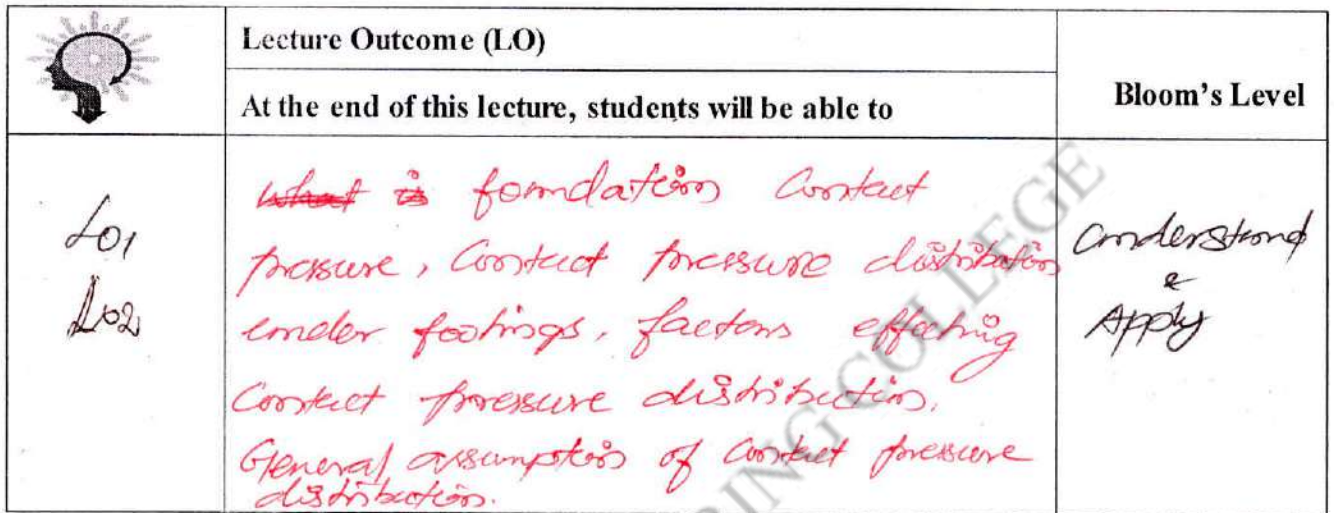 Lecture Outcome (LO)
At the end of this lecture, students will be able to
Bloom's Level
LO1
LO2
what is foundation Contact
pressure, Contact pressure distribution
under footings, factors effecting
Contact pressure distribution.
General assumption of contact pressure
distribution.
Understand
&
Apply
RING COLLEGE